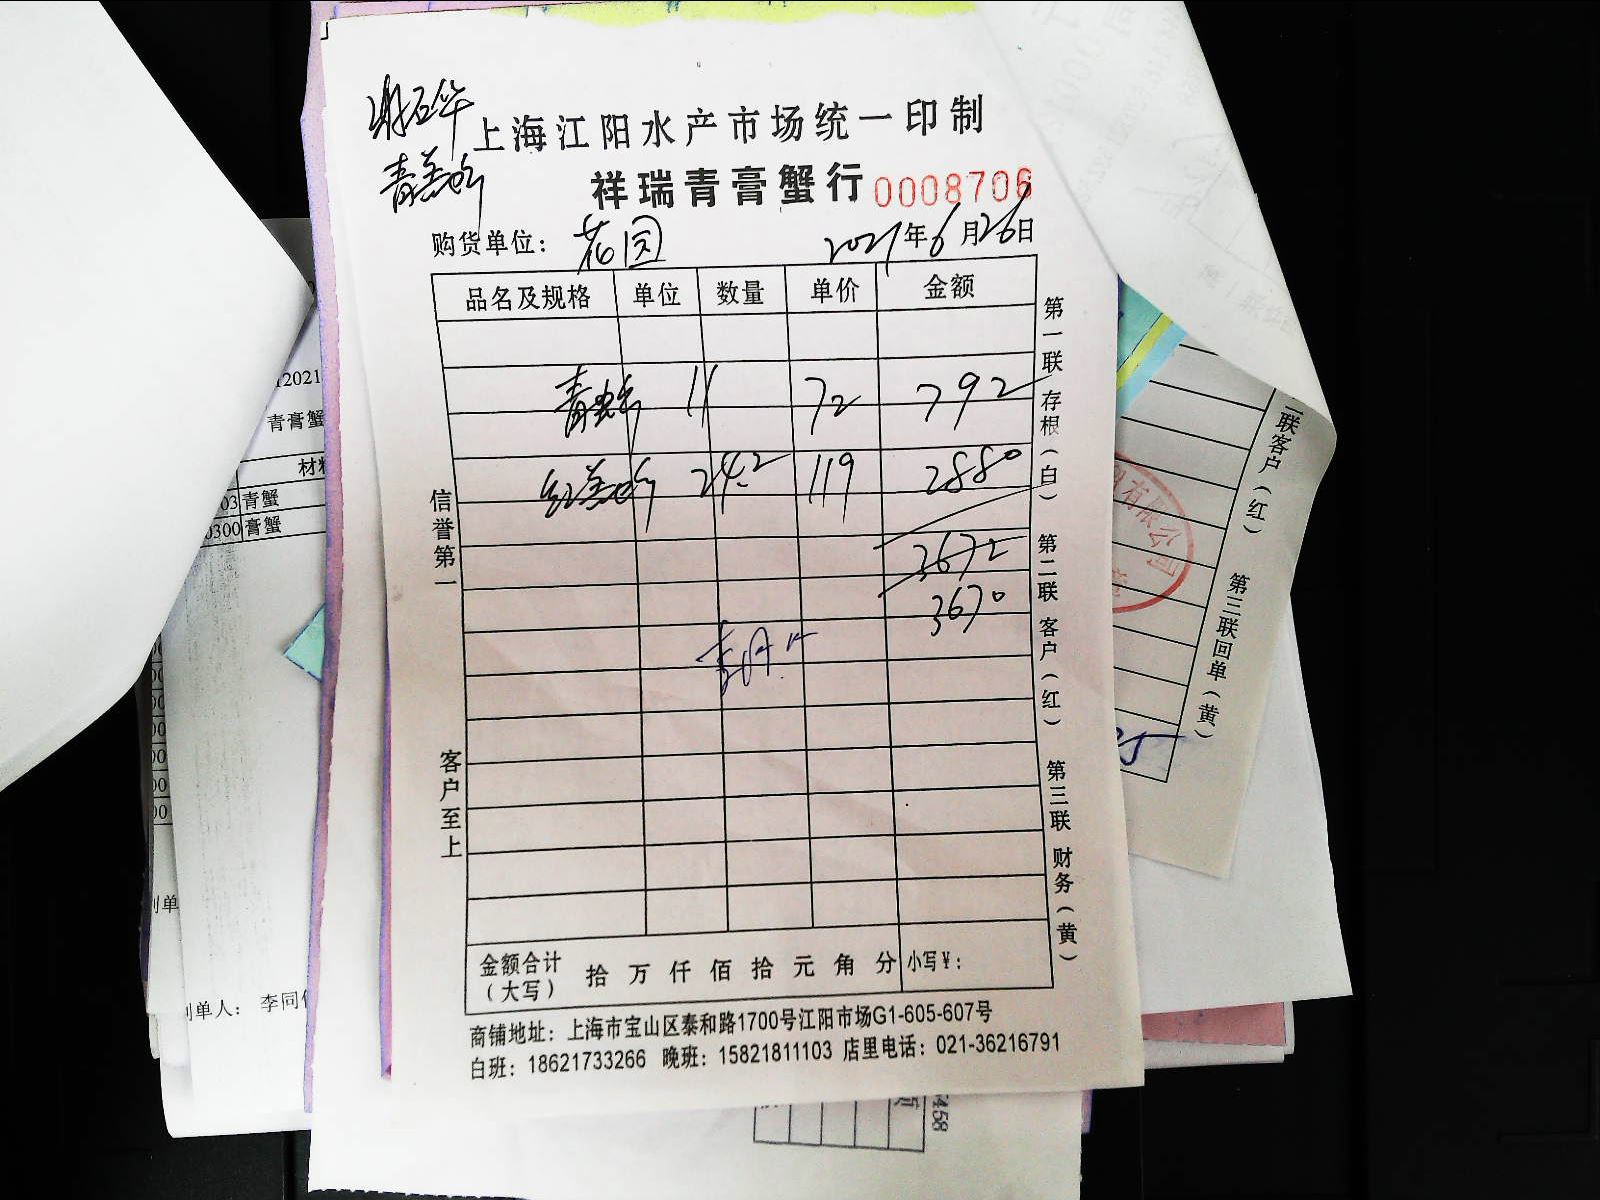 上海江阳水产市场统一印制
祥瑞青膏蟹行 0008706
购货单位：花园 2021年6月26日
品名及规格 单位 数量 单价 金额
青 11 72 792
红 24.2 119 2880
3672
3670
信誉第一
客户至上
第一联存根（白） 第二联客户（红） 第三联财务（黄）
金额合计（大写） 拾 万 仟 佰 拾 元 角 分 小写¥：
商铺地址：上海市宝山区泰和路1700号江阳市场G1-605-607号
白班：18621733266 晚班：15821811103 店里电话：021-36216791
12021
青膏蟹
材料
03 青蟹
0300 膏蟹
制单人： 李同
联客户（红） 第三联回单（黄）
有限公司
458